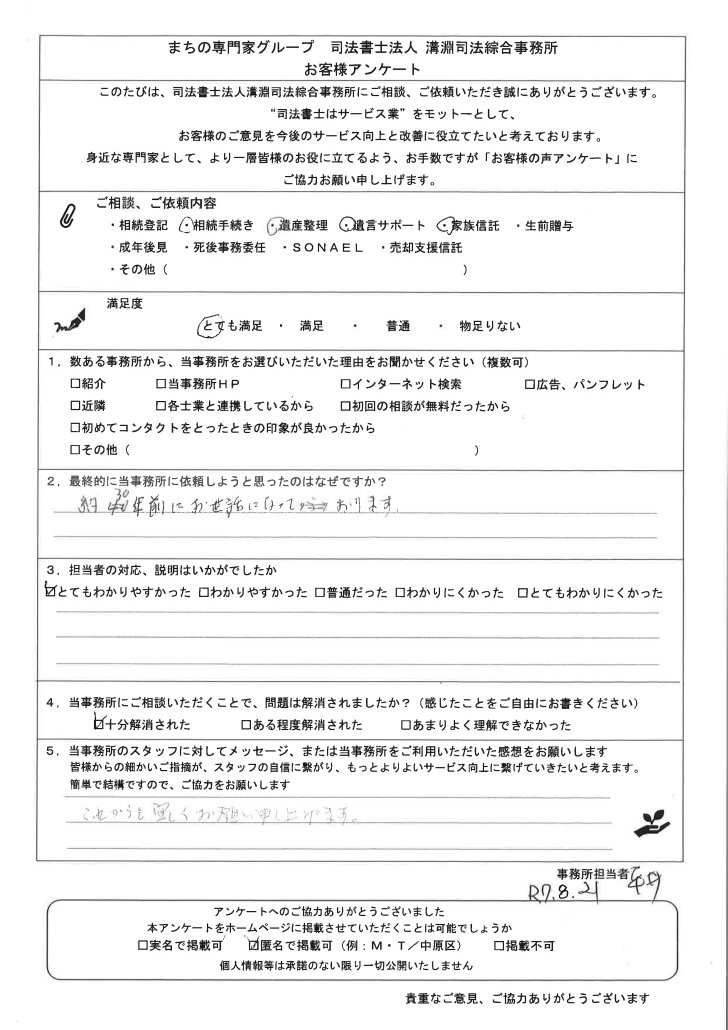 まちの専門家グループ　司法書士法人 溝淵司法綜合事務所
お客様アンケート
このたびは、司法書士法人溝淵司法綜合事務所にご相談、ご依頼いただき誠にありがとうございます。
“司法書士はサービス業”をモットーとして、
お客様のご意見を今後のサービス向上と改善に役立てたいと考えております。
身近な専門家として、より一層皆様のお役に立てるよう、お手数ですが「お客様の声アンケート」に
ご協力お願い申し上げます。
ご相談、ご依頼内容
・相続登記　・相続手続き　・遺産整理　・遺言サポート　・家族信託　・生前贈与
・成年後見　・死後事務委任　・ＳＯＮＡＥＬ　・売却支援信託
・その他（　　　　　　　　　　）
満足度
とても満足　・　満足　・　普通　・　物足りない
１．数ある事務所から、当事務所をお選びいただいた理由をお聞かせください（複数可）
□紹介　□当事務所ＨＰ　□インターネット検索　□広告、パンフレット
□近隣　□各士業と連携しているから　□初回の相談が無料だったから
□初めてコンタクトをとったときの印象が良かったから
□その他（　　　　　　　　　　）
２．最終的に当事務所に依頼しようと思ったのはなぜですか？
約30年前にお世話になっております。
３．担当者の対応、説明はいかがでしたか
☑とてもわかりやすかった □わかりやすかった □普通だった □わかりにくかった　□とてもわかりにくかった
４．当事務所にご相談いただくことで、問題は解消されましたか？（感じたことをご自由にお書きください）
☑十分解消された　□ある程度解消された　□あまりよく理解できなかった
５．当事務所のスタッフに対してメッセージ、または当事務所をご利用いただいた感想をお願いします
皆様からの細かいご指摘が、スタッフの自信に繋がり、もっとよりよいサービス向上に繋げていきたいと考えます。
簡単で結構ですので、ご協力をお願いします
これからも宜しくお願い申し上げます。
事務所担当者
R7.8.21
アンケートへのご協力ありがとうございました
本アンケートをホームページに掲載させていただくことは可能でしょうか
□実名で掲載可　☑匿名で掲載可（例：Ｍ・Ｔ／中原区）　□掲載不可
個人情報等は承諾のない限り一切公開いたしません
貴重なご意見、ご協力ありがとうございます